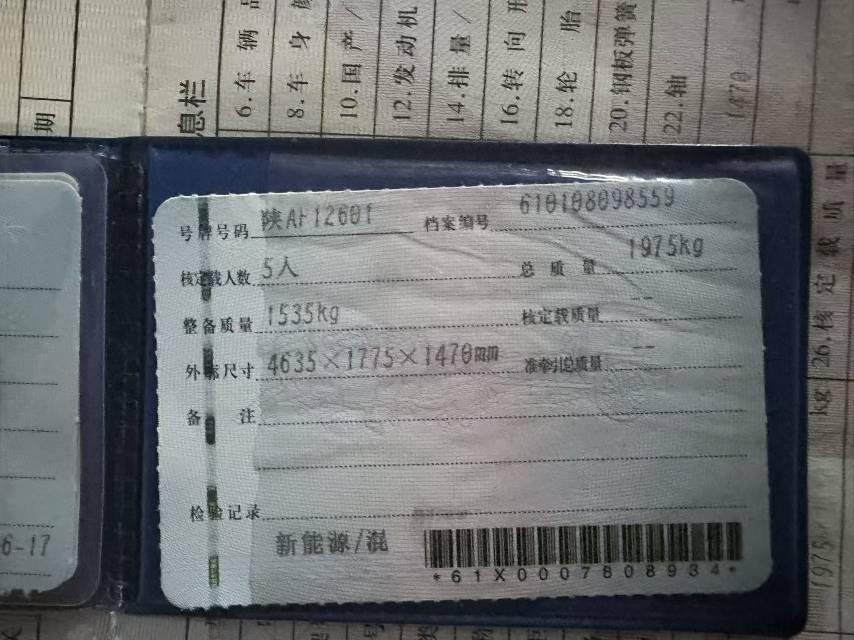 号牌号码 陕AF12601 档案编号 610108098559
核定载人数 5人 总质量 1975kg
整备质量 1535kg 核定载质量 --
外廓尺寸 4635×1775×1470mm 准牵引总质量 --
备注
检验记录
新能源/混
*61X0007808934*
6-17
期
息栏
6.车辆品
8.车身颜
10.国产/
12.发动机
14.排量/
16.转向形
18.轮胎
20.钢板弹簧
22.轴
1470
26.核定载质量
kg
1975